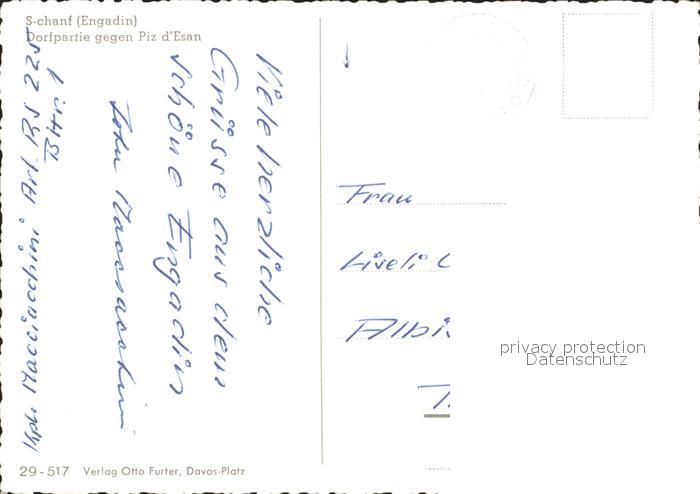 S-chanf (Engadin)
Dorfpartie gegen Piz d'Esan
Viele herzliche
Grüsse aus dem
schöne Engadin
Macciacchini Art. RS 225
Bttr. 1
Frau
Liseli
privacy protection
Datenschutz
29-517 Verlag Otto Furter, Davos-Platz